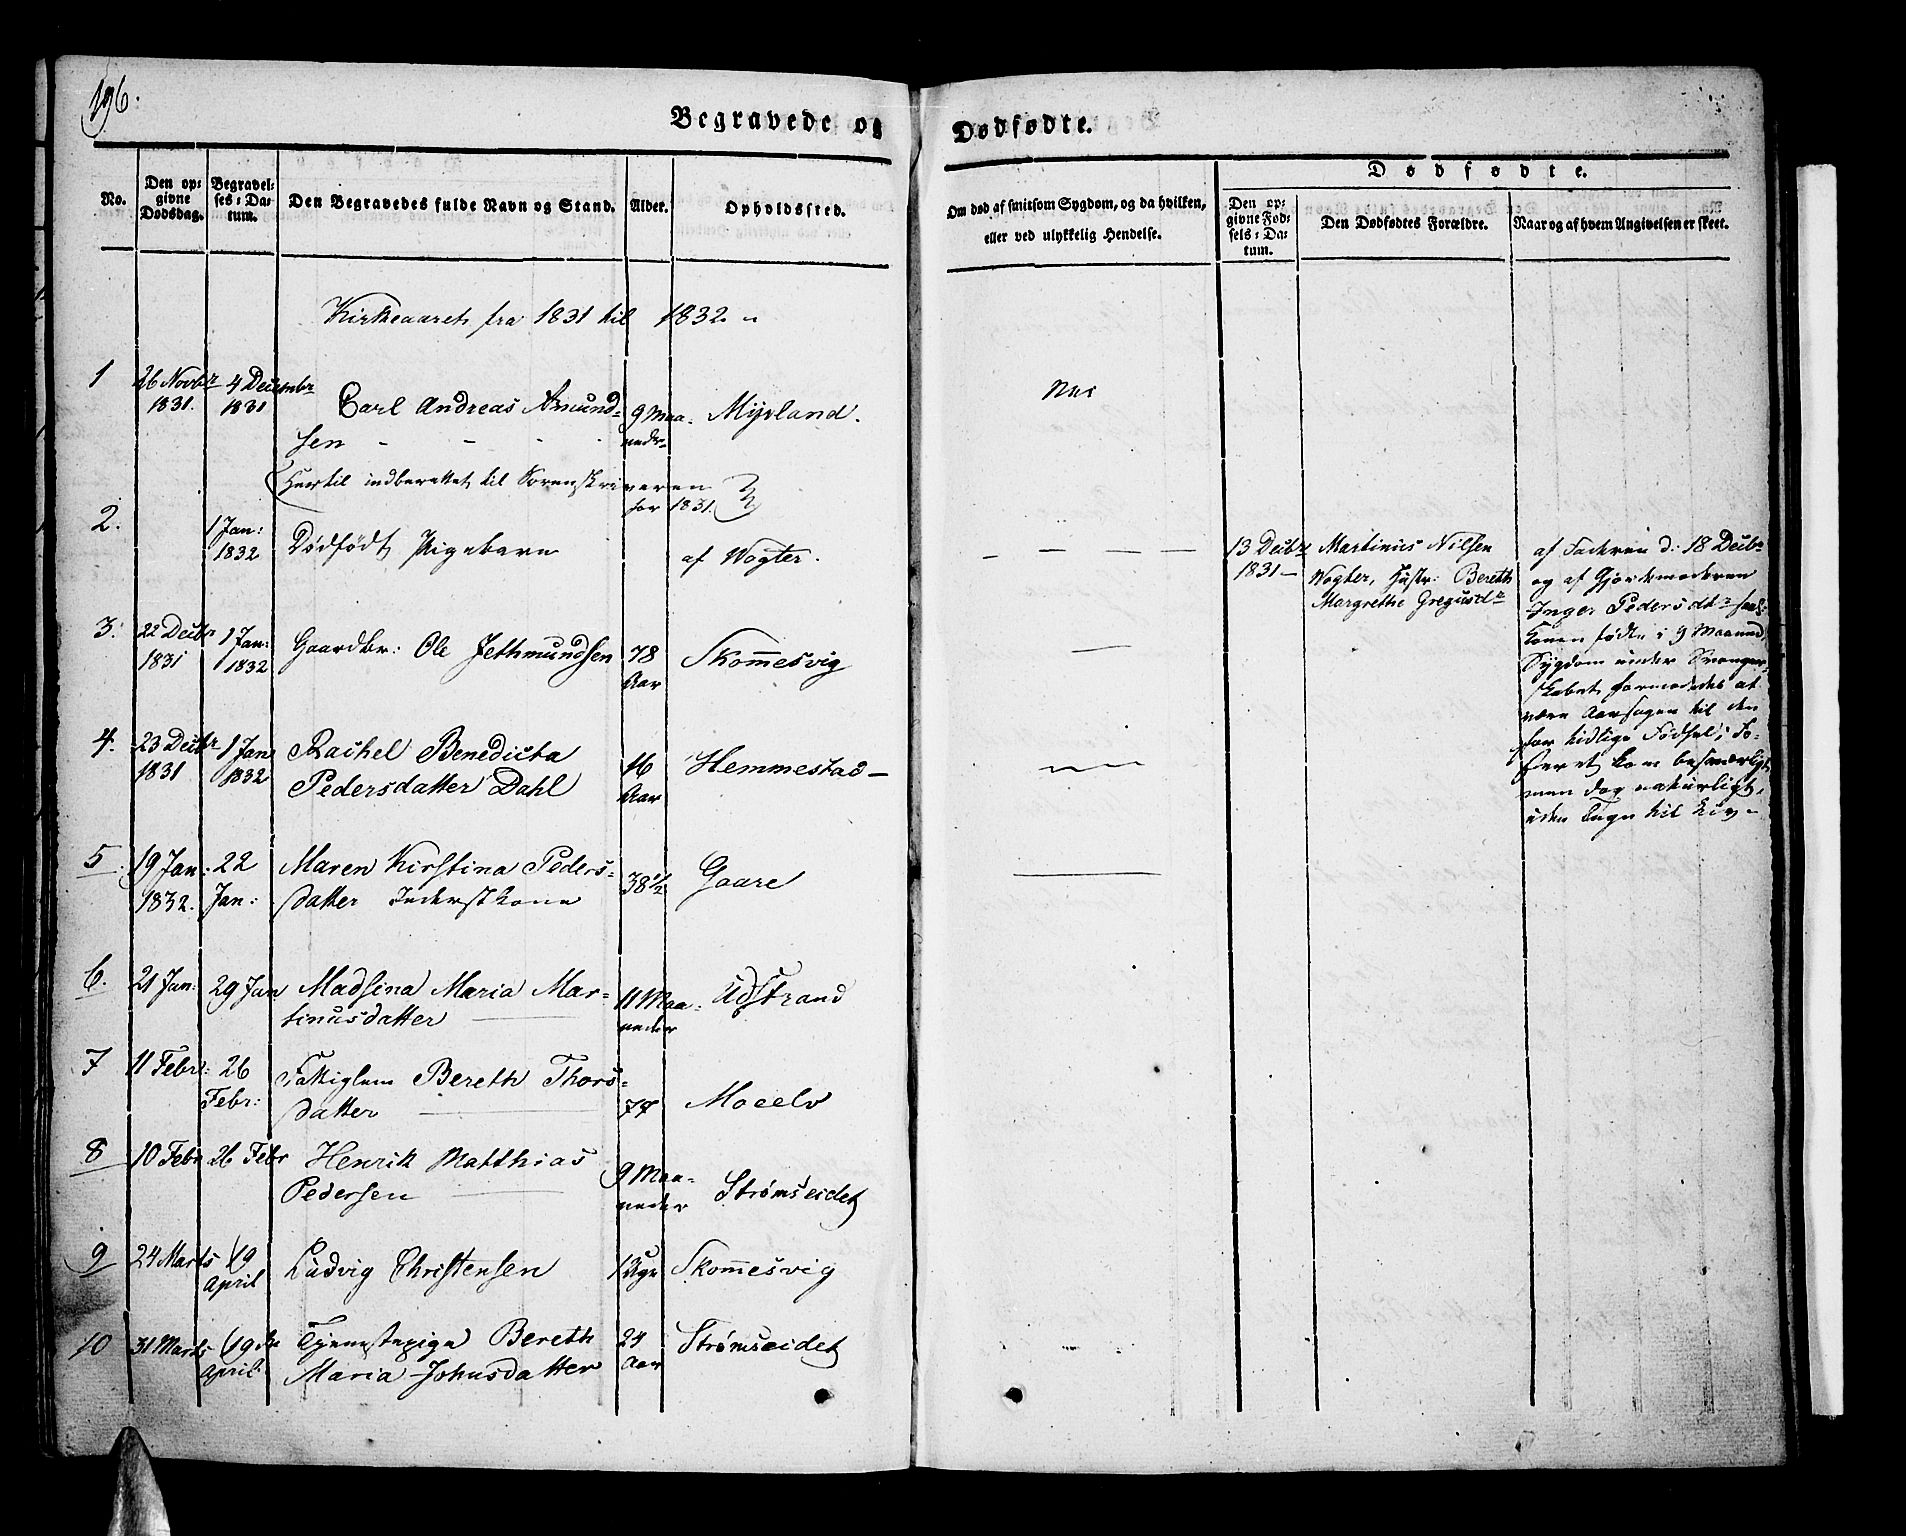 196.
Begravede og Dødfødte.
No.
Den op-
givne
Dødsdag.
Begravel-
ses-Da-
tum.
Den Begravedes fulde Navn og Stand.
Alder.
Opholdssted.
Om død af smitsom Sygdom, og da hvilken,
eller ved ulykkelig Hendelse.
Dødfødte.
Den op-
givne Fød-
sels-Da-
tum.
Den Dødfødtes Forældre.
Naar og af hvem Angivelsen er skeet.
Kirkeaaret fra 1831 til 1832
1 26 Novbr 4 Decembr
1831. 1831 Carl Andreas Amund-
sen 9 Maa-
neder Mijvland.
(Hertil indberettet til Sorenskriveren
for 1831.)
2. 1 Jan:
1832 Dødfödt Pigebarn af Wogter.
13 Decbr
1831
Martinus Nilsen
Wogter, Hustr: Bereth
Margrethe Gregusdr
af Faderen d: 18 Decbr
og af Gjordemoderen
Inger Pedersdtr
Konen fødte i 9 Maaned
Sygdom under Svanger-
skabet formodedes at
være Aarsagen til den
for tidlige Födsel; Fo-
steret kom besværligt
men dog naturligt,
uden Tegn til Liv
3. 22 Decbr 1 Jan:
1831 1832 Gaardbr: Ole Jethmundsen 78
Aar Skom̅esvig
4. 23 Decbr 1 Jan
1831 1832 Rachel Benedicta
Pedersdatter Dahl 16
Aar Hemmestad
5. 19 Jan: 22
1832. Jan: Maren Kirstina Peders-
datter Inderstkone 38 1/2 Gaare
6. 21 Jan: 29 Jan Madsina Maria Mar-
tinusdatter 11 Maa-
neder Udstrand
7 11 Febr: 26
Febr: Fattiglem Bereth Thors-
datter 77 Moeelv
8 10 Febr 26 Febr Henrik Matthias
Pedersen 9 Maa-
neder Strømseidet
9 24 Marts 19
April Ludvig Christensen 1 Uge Skom̅esvig
10 31 Marts 19 de
April Tjenestepige Bereth
Maria Johnsdatter 24
Aar Strømseidet